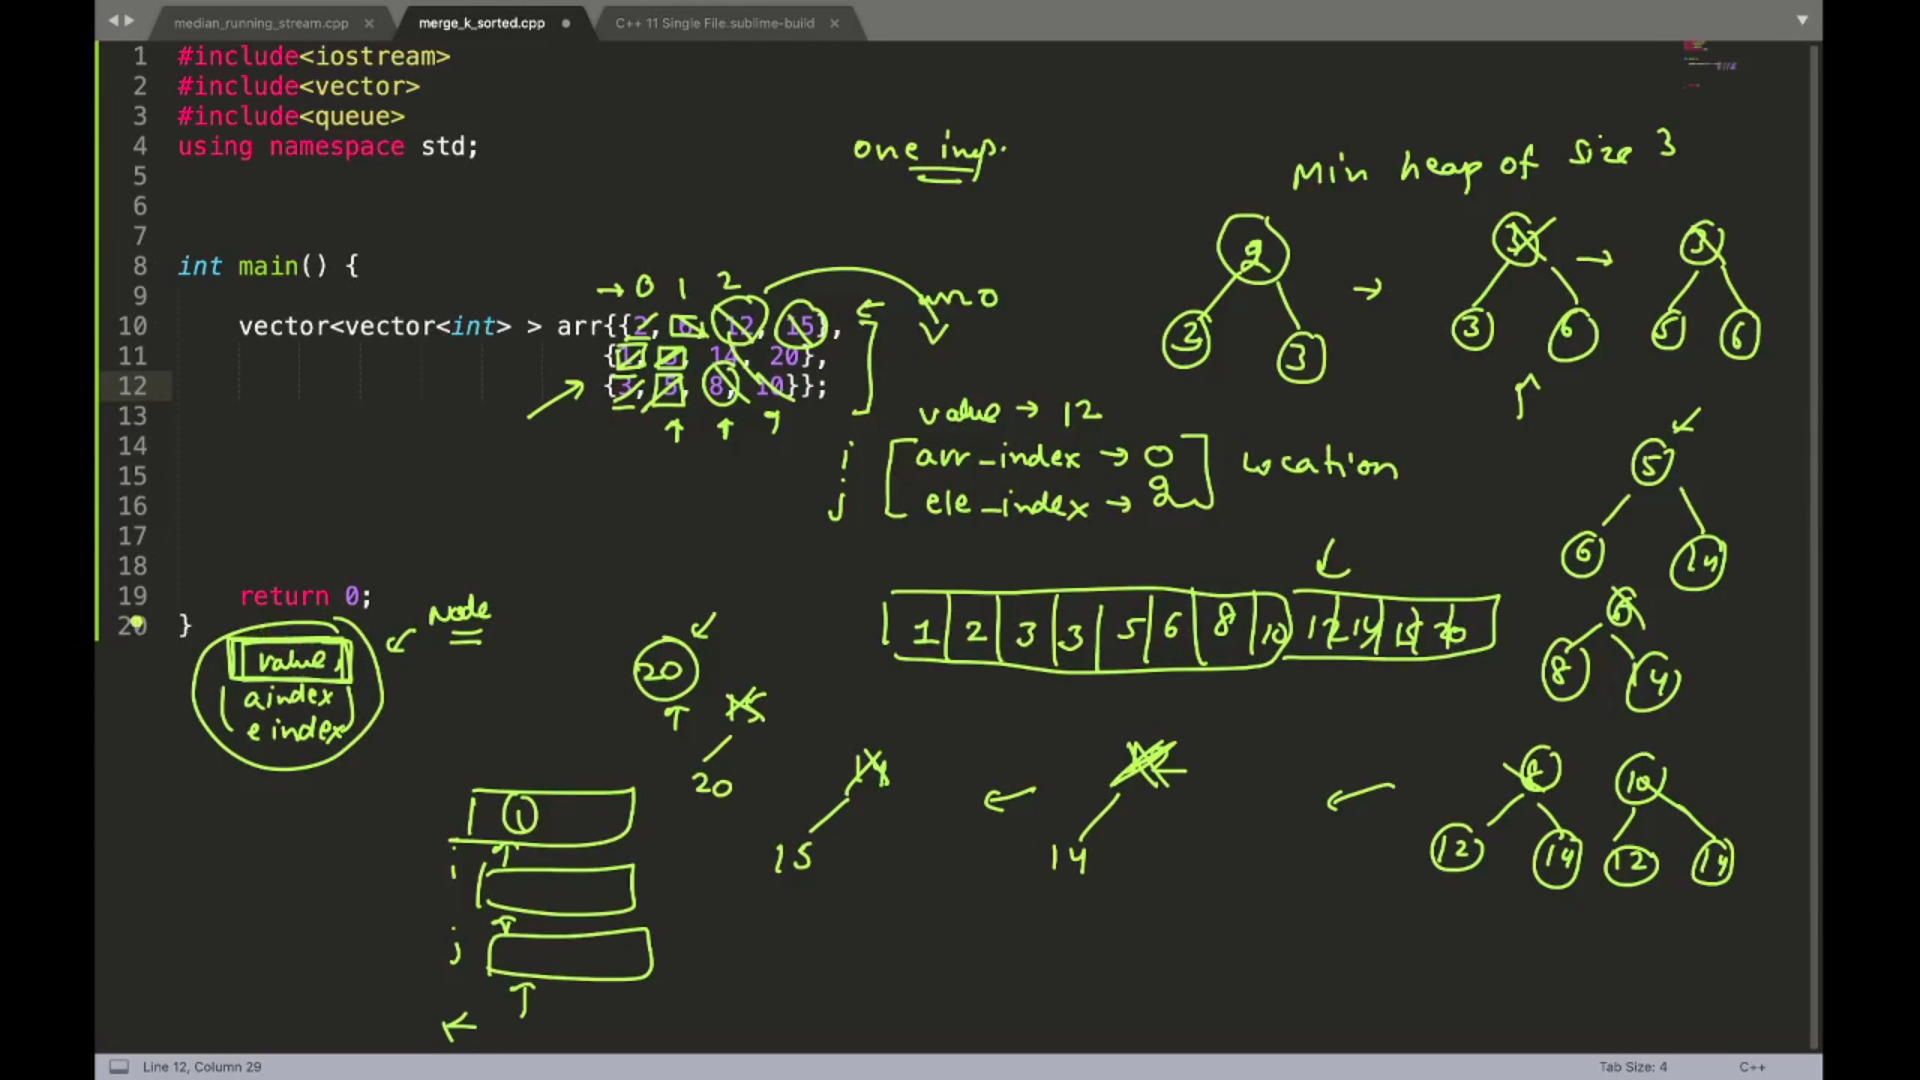 median_running_stream.cpp × merge_k_sorted.cpp C++ 11 Single File.sublime-build ×
1 #include<iostream>
2 #include<vector>
3 #include<queue>
4 using namespace std;
5
6
7
8 int main() {
9
10 vector<vector<int> > arr{{2, 6, 12, 15},
11 {1, 3, 14, 20},
12 {3, 5, 8, 10}};
13
14
15
16
17
18
19 return 0;
20 }
one imp.
Min heap of size 3
→ 0 1 2
2
2 3
→
3
3 6
→
3
5 6
value → 12
i arr_index → 0
j ele_index → 2
Location
5
6 14
1 2 3 3 5 6 8 10 12 14 15 20
6
8 14
Node
value,
aindex
eindex
20
15
20
14
15
14
8
12 14
10
12 14
1
i
j
Line 12, Column 29 Tab Size: 4 C++